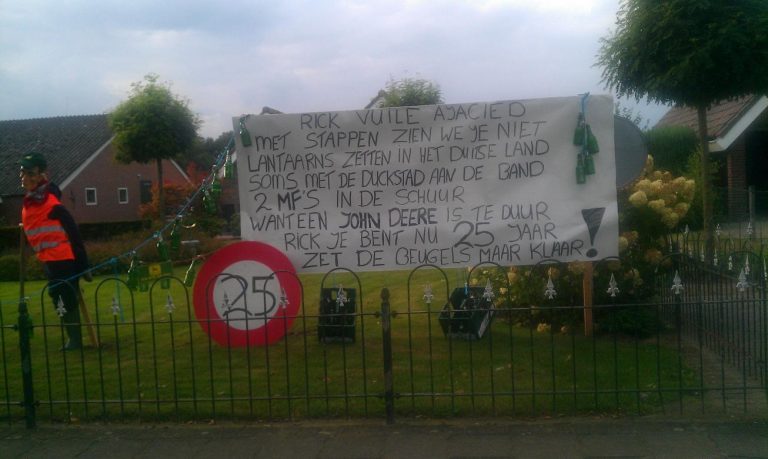 RICK VUILE AJACIED
MET STAPPEN ZIEN WE JE NIET
LANTAARNS ZETTEN IN HET DUITSE LAND
SOMS MET DE DUCKSTAD AAN DE BAND
2 MF'S IN DE SCHUUR
WANT EEN JOHN DEERE IS TE DUUR
RICK JE BENT NU 25 JAAR
ZET DE BEUGELS MAAR KLAAR!
25